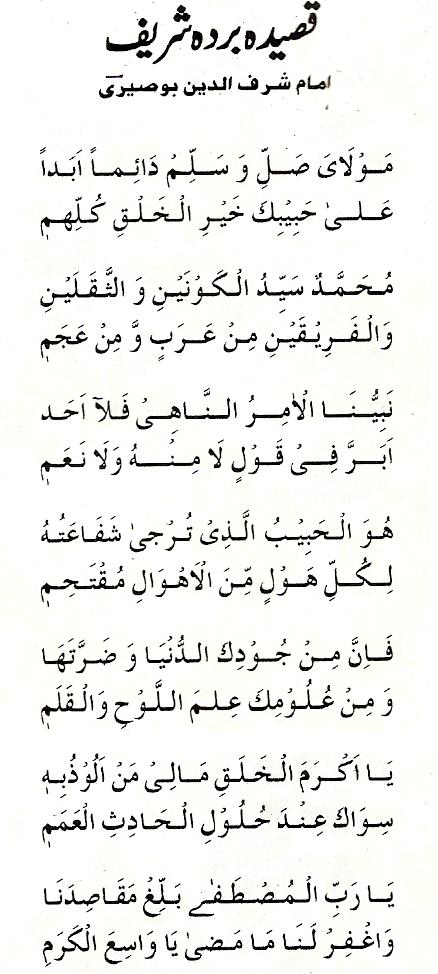 قصیدہ بردہ شریف
امام شرف الدین بوصیری
مَوْلَایَ صَلِّ وَ سَلِّمْ دَائِمـاً اَبَداً
عَلـىٰ حَبِيْبِكَ خَيْرِ الْخَلْقِ كُلِّهِمٖ
مُحَمَّدٌ سَيِّدُ الْكَوْنَيْنِ وَ الثَّقَلَيْنِ
وَالْفَرِيْقَيْنِ مِنْ عَرَبٍ وَّ مِنْ عَجَمٖ
نَبِيُّنَا الْاٰمِرُ النَّاهِیْ فَلَآ اَحَد
اَبَرَّ فِیْ قَوْلٍ لَا مِنْهُ وَلَا نَعَمٖ
هُوَ الْحَبِيْبُ الَّذِیْ تُرْجىٰ شَفَاعَتُهٗ
لِكُلِّ هَوْلٍ مِّنَ الْاَهْوَالِ مُقْتَحِمٖ
فَاِنَّ مِنْ جُوْدِكَ الدُّنْيَا وَ ضَرَّتَهَا
وَ مِنْ عُلُوْمِكَ عِلمَ اللَّوْحِ وَالْقَلَمٖ
يَا اَكْرَمَ الْخَلَقِ مَالِیْ مَنْ اَلُوْذُبِهٖ
سِوَاكَ عِنْدَ حُلُوْلِ الْحَادِثِ الْعَمَمٖ
يَا رَبِّ الْمُصْطَفٰے بَلِّغْ مَقَاصِدَنَا
وَاغْفِرْ لَنَا مَا مَضىٰ يَا وَاسِعَ الْكَرَمِ